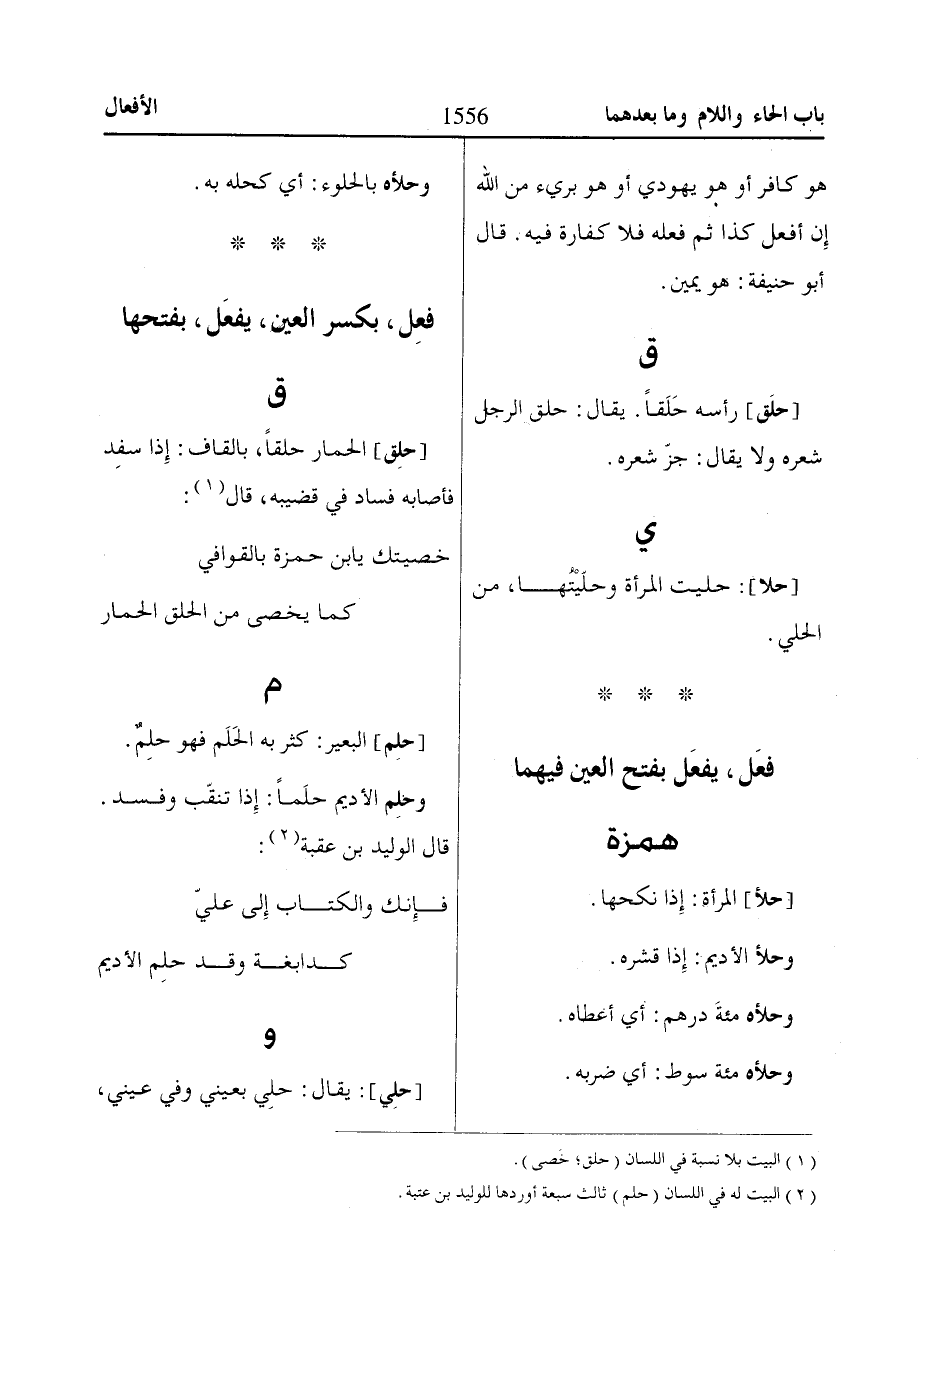 باب الحاء واللام وما بعدهما 1556 الأفعال
هو كافر أو هو يهودي أو هو بريء من الله
إن أفعل كذا ثم فعله فلا كفارة فيه. قال
أبو حنيفة: هو يمين.
ق
[حلَق] رأسه حَلَقاً. يقال: حلق الرجل
شعره ولا يقال: جزّ شعره.
ي
[حلا]: حليت المرأة وحلّيْتُها، من
الحلي.
* * *
فعَل، يفعَل بفتح العين فيهما
همزة
[حلأ] المرأة: إذا نكحها.
وحلأ الأديم: إذا قشره.
وحلأه مئةَ درهم: أي أعطاه.
وحلأه مئة سوط: أي ضربه.
وحلأه بالحلوء: أي كحله به.
* * *
فعِل، بكسر العين، يفعَل، بفتحها
ق
[حلِق] الحمار حلقاً، بالقاف: إذا سفِد
فأصابه فساد في قضيبه، قال(١):
خصيتك يابن حمزة بالقوافي
كما يخصى من الحلق الحمار
م
[حلِم] البعير: كثر به الحَلَم فهو حلِمٌ.
وحلِم الأديم حلَماً: إذا تنقّب وفسد.
قال الوليد بن عقبة(٢):
فإنك والكتاب إلى عليّ
كدابغة وقد حلِم الأديم
و
[حلِي]: يقال: حلِي بعيني وفي عيني،
(١) البيت بلا نسبة في اللسان (حلق؛ خَصى).
(٢) البيت له في اللسان (حلم) ثالث سبعة أوردها للوليد بن عتبة.